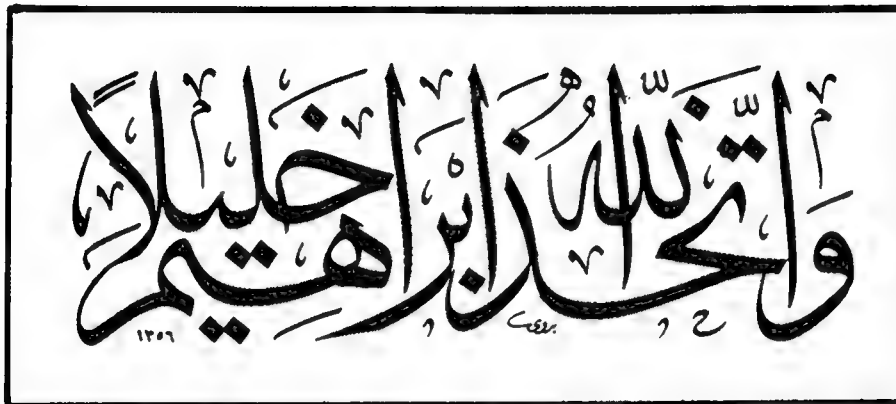 وَاتَّخَذَ اللّٰهُ اِبْرَاهِيمَ خَلِيلًا
بدوي
١٣٥٦